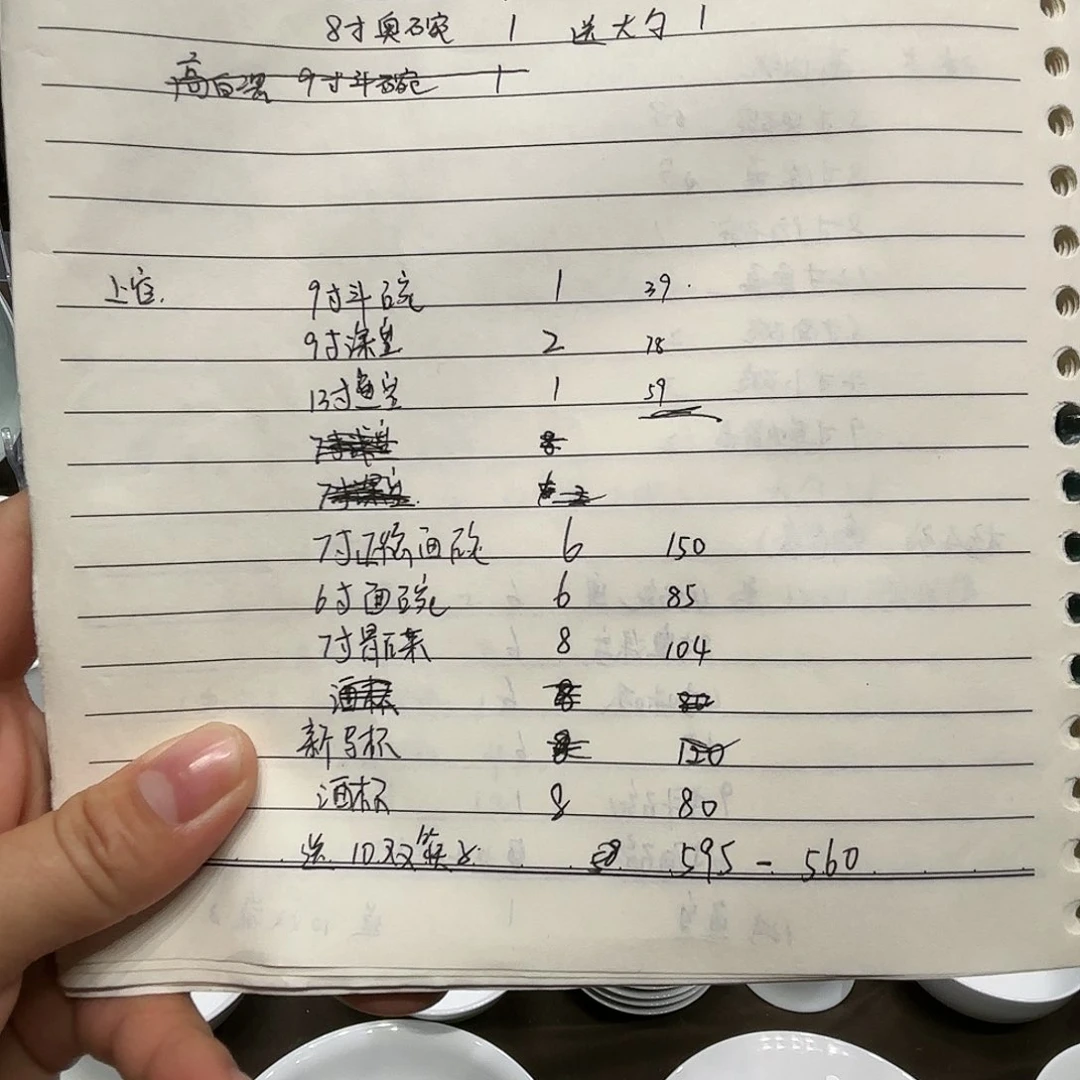 8寸奥碗 1 送大勺 1
高白瓷 9寸斗碗 1
上官. 9寸斗碗 1 39.
9寸深盘 2 78
13寸鱼盘 1 59
7寸 面碗 6 150
6寸面碗 6 85
7寸骨碟 8 104
酒杯 80
新 杯 120
酒杯 8 80
送 10双筷子. 595 - 560